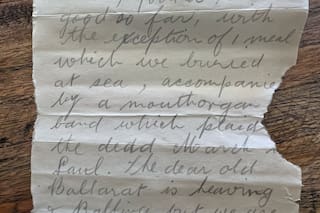 good so far, with
the exception of 1 meal
which we buried
at sea, accompanie
by a mouthorgan
band which plaid
the dead March i
Saul. The dear old
Ballarat is heaving
& Rolling but we are